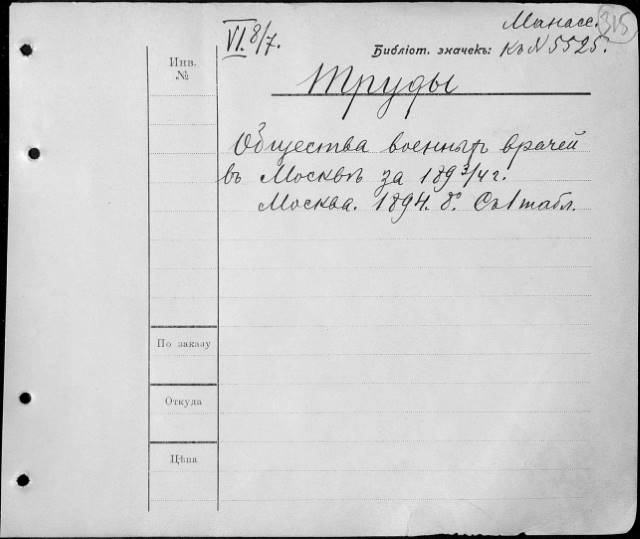 Манасс. 315
VI. 8/7.
Библіот. значекъ: Къ N 5525.
Инв. №
Труды
Общества военныхъ врачей
въ Москвѣ за 1893/4 г.
Москва. 1894. 8°. Съ 1 табл.
По заказу
Откуда
Цѣна